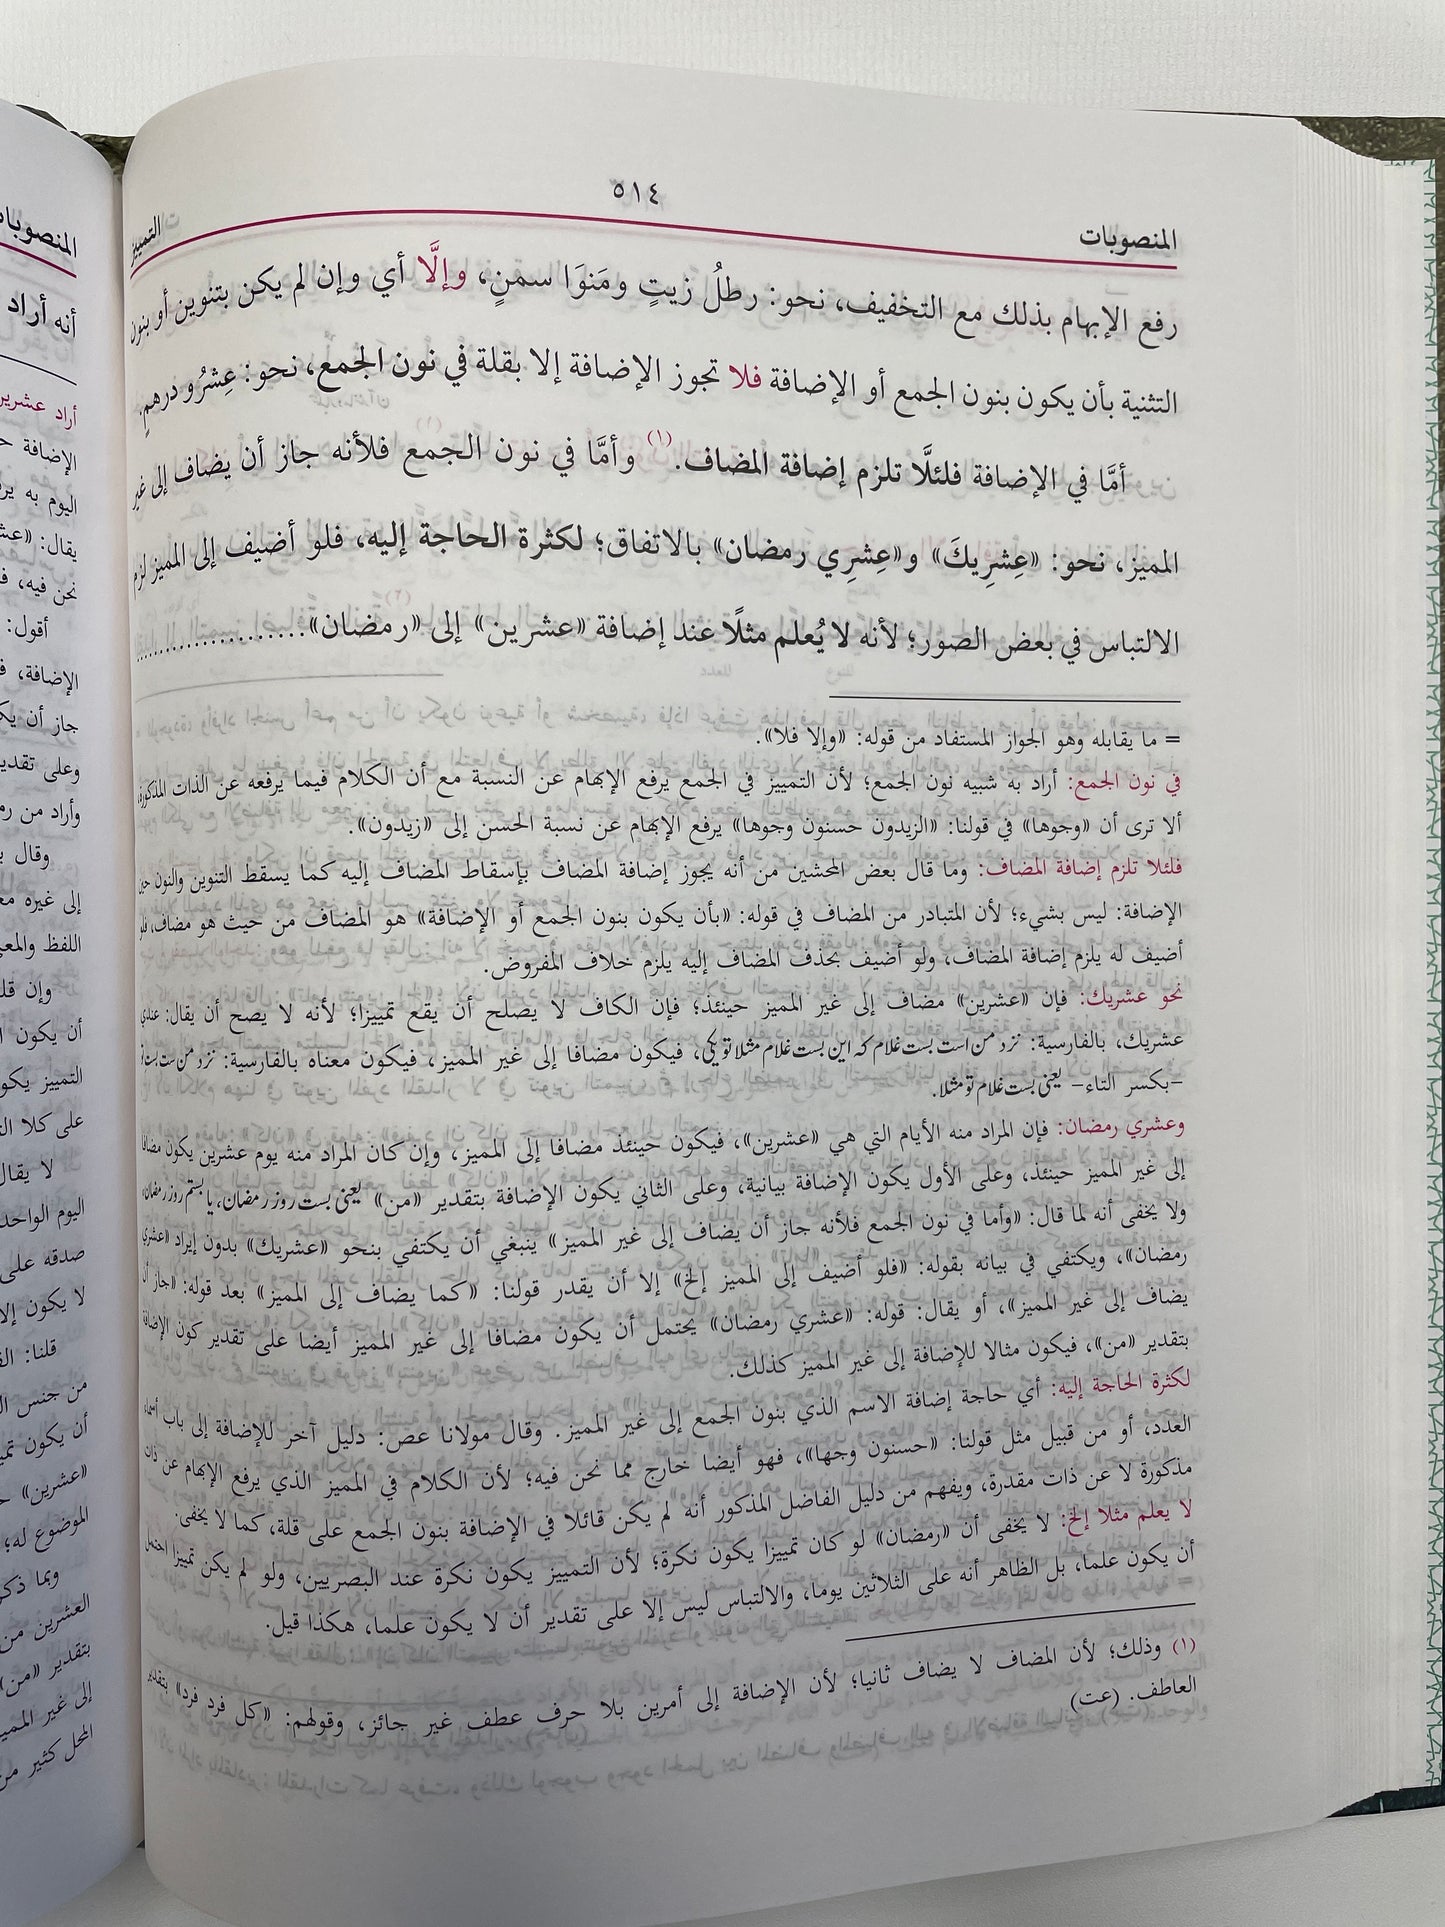 ٥١٤
المنصوبات
التمييز
رفع الإبهام بذلك مع التخفيف، نحو: رطلُ زيتٍ ومَنوَا سمنٍ، وإلَّا أي وإن لم يكن بتنوين أو بنون
التثنية بأن يكون بنون الجمع أو الإضافة فلا تجوز الإضافة إلا بقلة في نون الجمع، نحو: عِشرُو درهمٍ.
أمَّا في الإضافة فلئلَّا تلزم إضافة المضاف.(١) وأمَّا في نون الجمع فلأنه جاز أن يضاف إلى غير
المميز، نحو: «عِشرِيكَ» و«عِشرِي رمضان» بالاتفاق؛ لكثرة الحاجة إليه، فلو أضيف إلى المميز لزم
الالتباس في بعض الصور؛ لأنه لا يُعلم مثلًا عند إضافة «عشرين» إلى «رمضان»................
= ما يقابله وهو الجواز المستفاد من قوله: «وإلا فلا».
في نون الجمع: أراد به شبيه نون الجمع؛ لأن التمييز في الجمع يرفع الإبهام عن النسبة مع أن الكلام فيما يرفعه عن الذات المذكورة،
ألا ترى أن «وجوها» في قولنا: «الزيدون حسنون وجوها» يرفع الإبهام عن نسبة الحسن إلى «زيدون».
فلئلا تلزم إضافة المضاف: وما قال بعض المحشين من أنه يجوز إضافة المضاف بإسقاط المضاف إليه كما يسقط التنوين والنون حين
الإضافة: ليس بشيء؛ لأن المتبادر من المضاف في قوله: «بأن يكون بنون الجمع أو الإضافة» هو المضاف من حيث هو مضاف، فلو
أضيف له يلزم إضافة المضاف، ولو أضيف بحذف المضاف إليه يلزم خلاف المفروض.
نحو عشريك: فإن «عشرين» مضاف إلى غير المميز حينئذ؛ فإن الكاف لا يصلح أن يقع تمييزا؛ لأنه لا يصح أن يقال: عندي
عشريك، بالفارسية: نزد من است بست غلام كه اين بست غلام مثلا توكى، فيكون مضافا إلى غير المميز، فيكون معناه بالفارسية: نزد من ست بست
-بكسر التاء- يعنى بست غلام تو مثلا.
وعشري رمضان: فإن المراد منه الأيام التي هي «عشرين»، فيكون حينئذ مضافا إلى المميز، وإن كان المراد منه يوم عشرين يكون مضافا
إلى غير المميز حينئذ، وعلى الأول يكون الإضافة بيانية، وعلى الثاني يكون الإضافة بتقدير «من» يعنى بست روز رمضان، يا بستم روز رمضان،
ولا يخفى أنه لما قال: «وأما في نون الجمع فلأنه جاز أن يضاف إلى غير المميز» ينبغي أن يكتفي بنحو «عشريك» بدون إيراد «عشري
رمضان»، ويكتفي في بيانه بقوله: «فلو أضيف إلى المميز إلخ» إلا أن يقدر قولنا: «كما يضاف إلى المميز» بعد قوله: «جاز أن
يضاف إلى غير المميز»، أو يقال: قوله: «عشري رمضان» يحتمل أن يكون مضافا إلى غير المميز أيضا على تقدير كون الإضافة
بتقدير «من»، فيكون مثالا للإضافة إلى غير المميز كذلك.
لكثرة الحاجة إليه: أي حاجة إضافة الاسم الذي بنون الجمع إلى غير المميز. وقال مولانا عص: دليل آخر للإضافة إلى باب أسماء
العدد، أو من قبيل مثل قولنا: «حسنون وجها»، فهو أيضا خارج مما نحن فيه؛ لأن الكلام في المميز الذي يرفع الإبهام عن ذات
مذكورة لا عن ذات مقدرة، ويفهم من دليل الفاضل المذكور أنه لم يكن قائلا في الإضافة بنون الجمع على قلة، كما لا يخفى.
لا يعلم مثلا إلخ: لا يخفى أن «رمضان» لو كان تمييزا يكون نكرة؛ لأن التمييز يكون نكرة عند البصريين، ولو لم يكن تمييزا احتمل
أن يكون علما، بل الظاهر أنه على الثلاثين يوما، والالتباس ليس إلا على تقدير أن لا يكون علما، هكذا قيل. =
(١) وذلك؛ لأن المضاف لا يضاف ثانيا؛ لأن الإضافة إلى أمرين بلا حرف عطف غير جائز، وقولهم: «كل فرد فرد» بتقدير
العاطف. (عت)
المنصوبات
أنه أراد
أراد عشرين
الإضافة
اليوم به
يقال:
نحن فيه،
أقول:
الإضافة،
جاز أن
وعلى
وأراد من
وقال
إلى غيره
اللفظ
وإن
أن يكون
التمييز
على كلا
لا يقال
اليوم الواحد
صدقه على
لا يكون إلا
قلنا:
من جنس
أن يكون
«عشرين»
الموضوع له؛
وبما
العشرين من
بتقدير «من»
إلى غير
المحل كثير من